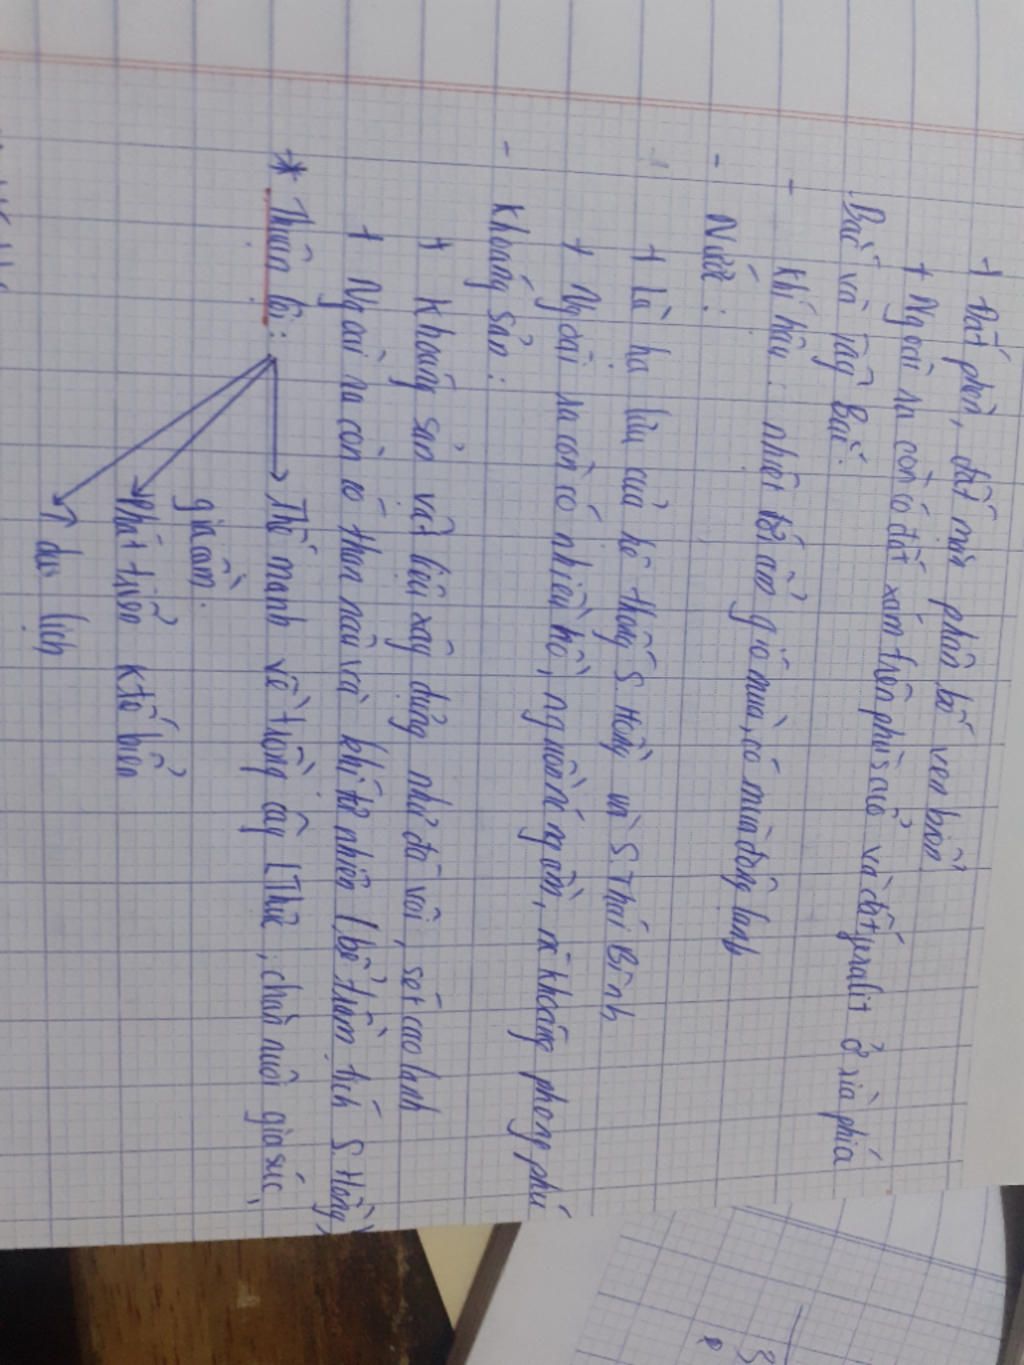 + Đất phèn, đất mặn phân bố ven biển
+ Ngoài ra còn có đất xám trên phù sa cổ và đất feralit ở rìa phía
Bắc và Tây Bắc.
- Khí hậu: nhiệt đới ẩm gió mùa, có mùa đông lạnh
- Nước:
+ Là hạ lưu của hệ thống S. Hồng và S Thái Bình
+ Ngoài ra còn có nhiều hồ, nguồn nc ngầm, nc khoáng phong phú
- Khoáng sản:
+ Khoáng sản vật liệu xây dựng như đá vôi, sét cao lanh
+ Ngoài ra còn có than nâu và khí tự nhiên (bể trầm tích S. Hồng)
* Thuận lợi:
Thế mạnh về trồng cây LThực, chăn nuôi gia súc,
gia cầm.
Phát triển ktế biển
du lịch